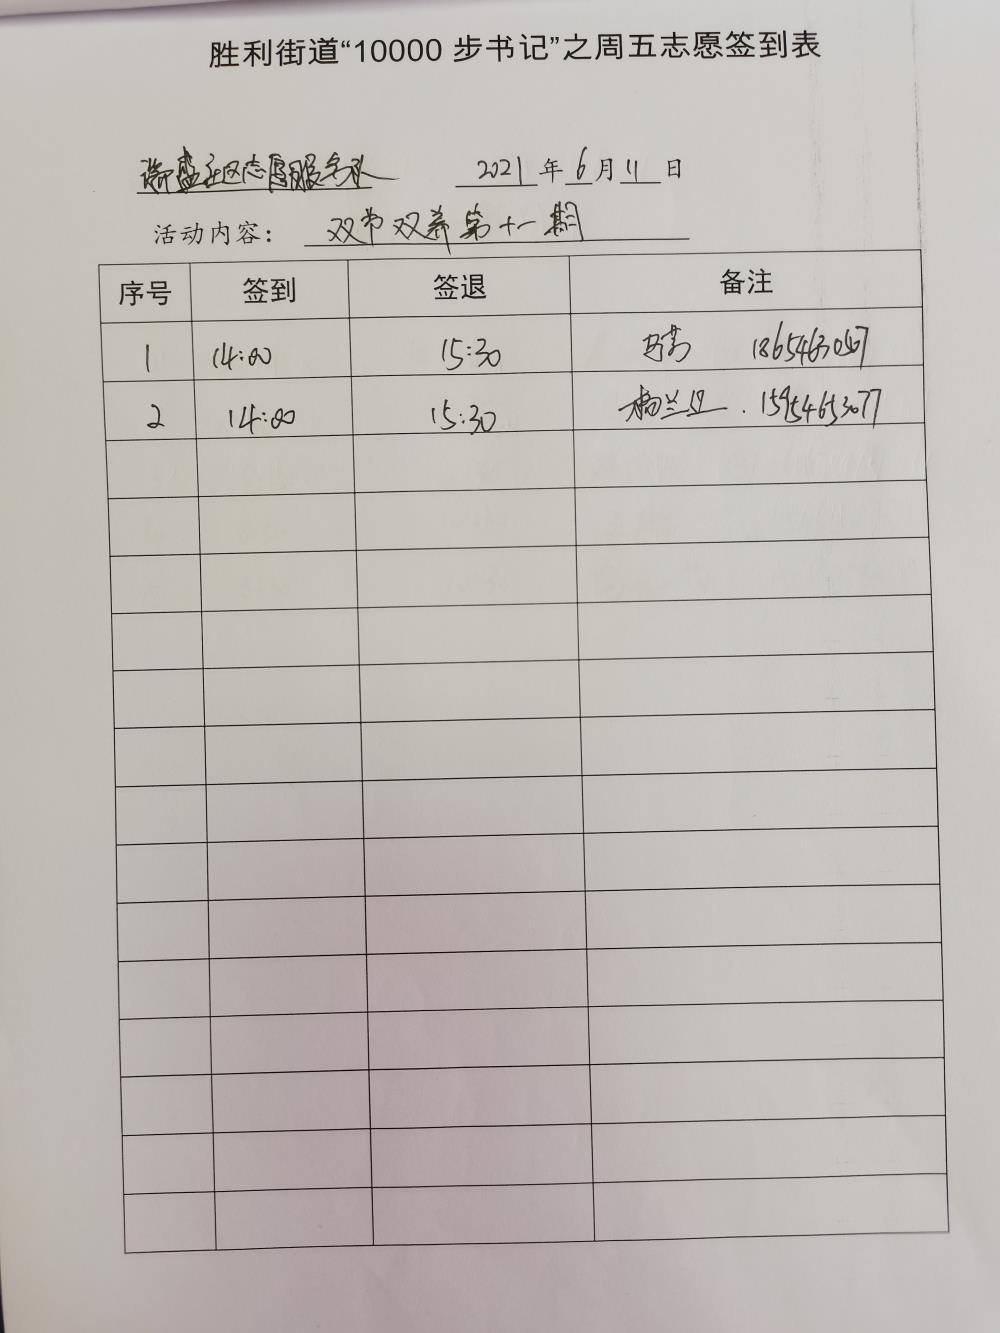 胜利街道“10000 步书记”之周五志愿签到表
盛社区志愿服务队 2021 年 6 月 11 日
活动内容： 双节双养第十一期
序号 签到 签退 备注
1 14:00 15:30
2 14:00 15:30 15954653077